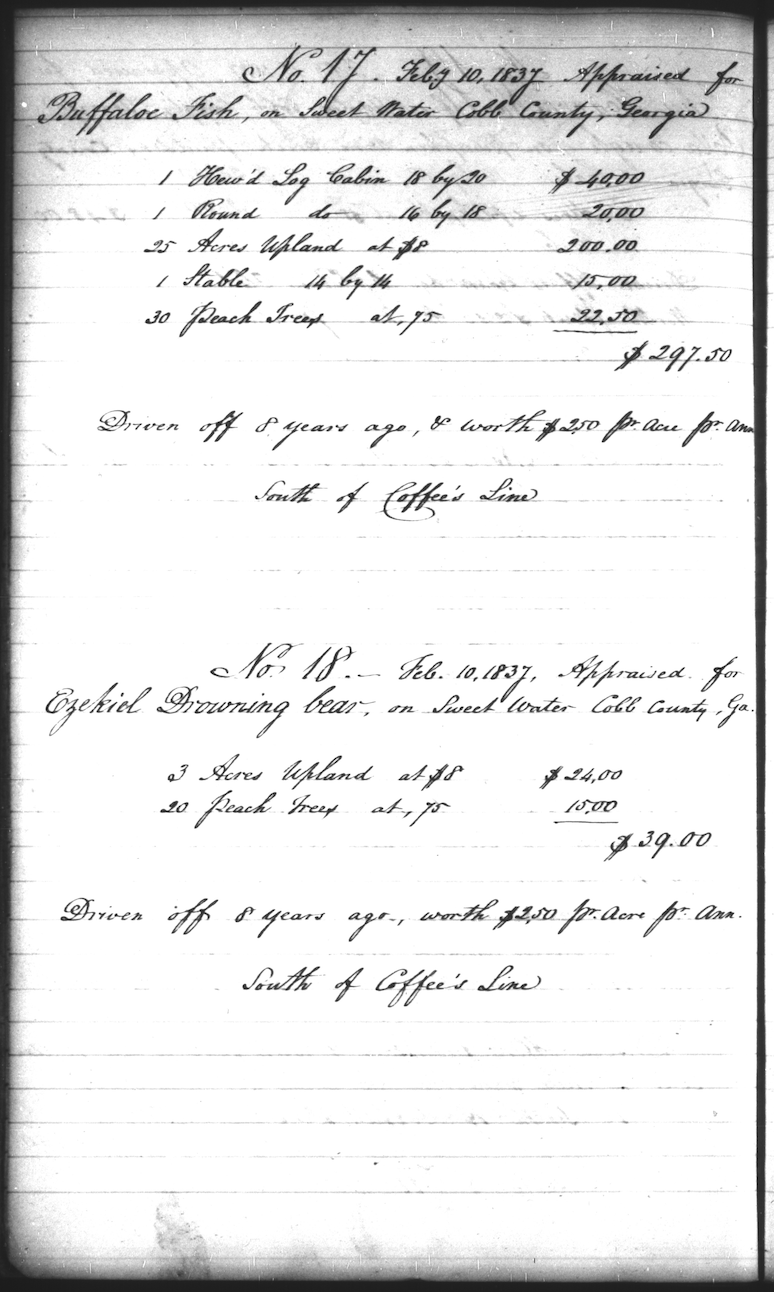 No. 17. Feby 10, 1837 Appraised for
Buffaloe Fish, on Sweet Water Cobb County, Georgia
1 Hew'd Log Cabin 18 by 20 $40,00
1 Round do 16 by 18 20,00
25 Acres Upland at $8 200.00
1 Stable 14 by 14 15,00
30 Peach Trees at, 75 22,50
$297.50
Driven off 8 years ago, & worth $2,50 pr. Acre pr. Ann
South of Coffee's Line
No. 18. – Feb. 10, 1837, Appraised for
Ezekiel Drowning bear, on Sweet Water Cobb County, Ga.
3 Acres Upland at $8 $24,00
20 Peach Trees at, 75 15,00
$39.00
Driven off 8 years ago, worth $2,50 pr. Acre pr. Ann.
South of Coffee's Line